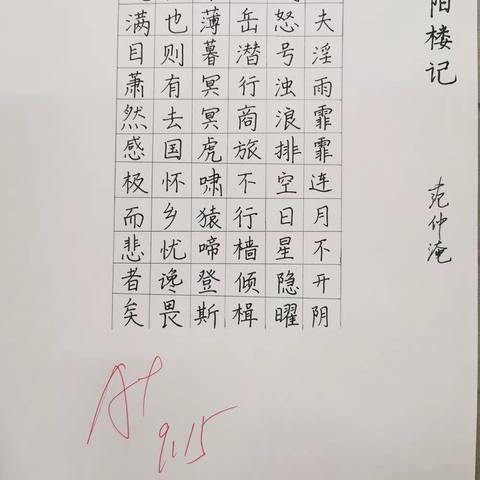 阳楼记
范仲淹
夫淫雨霏霏连月不开阴
怒号浊浪排空日星隐曜
岳潜行商旅不行樯倾楫
薄暮冥冥虎啸猿啼登斯
也则有去国怀乡忧谗畏
满目萧然感极而悲者矣
A+
9.15